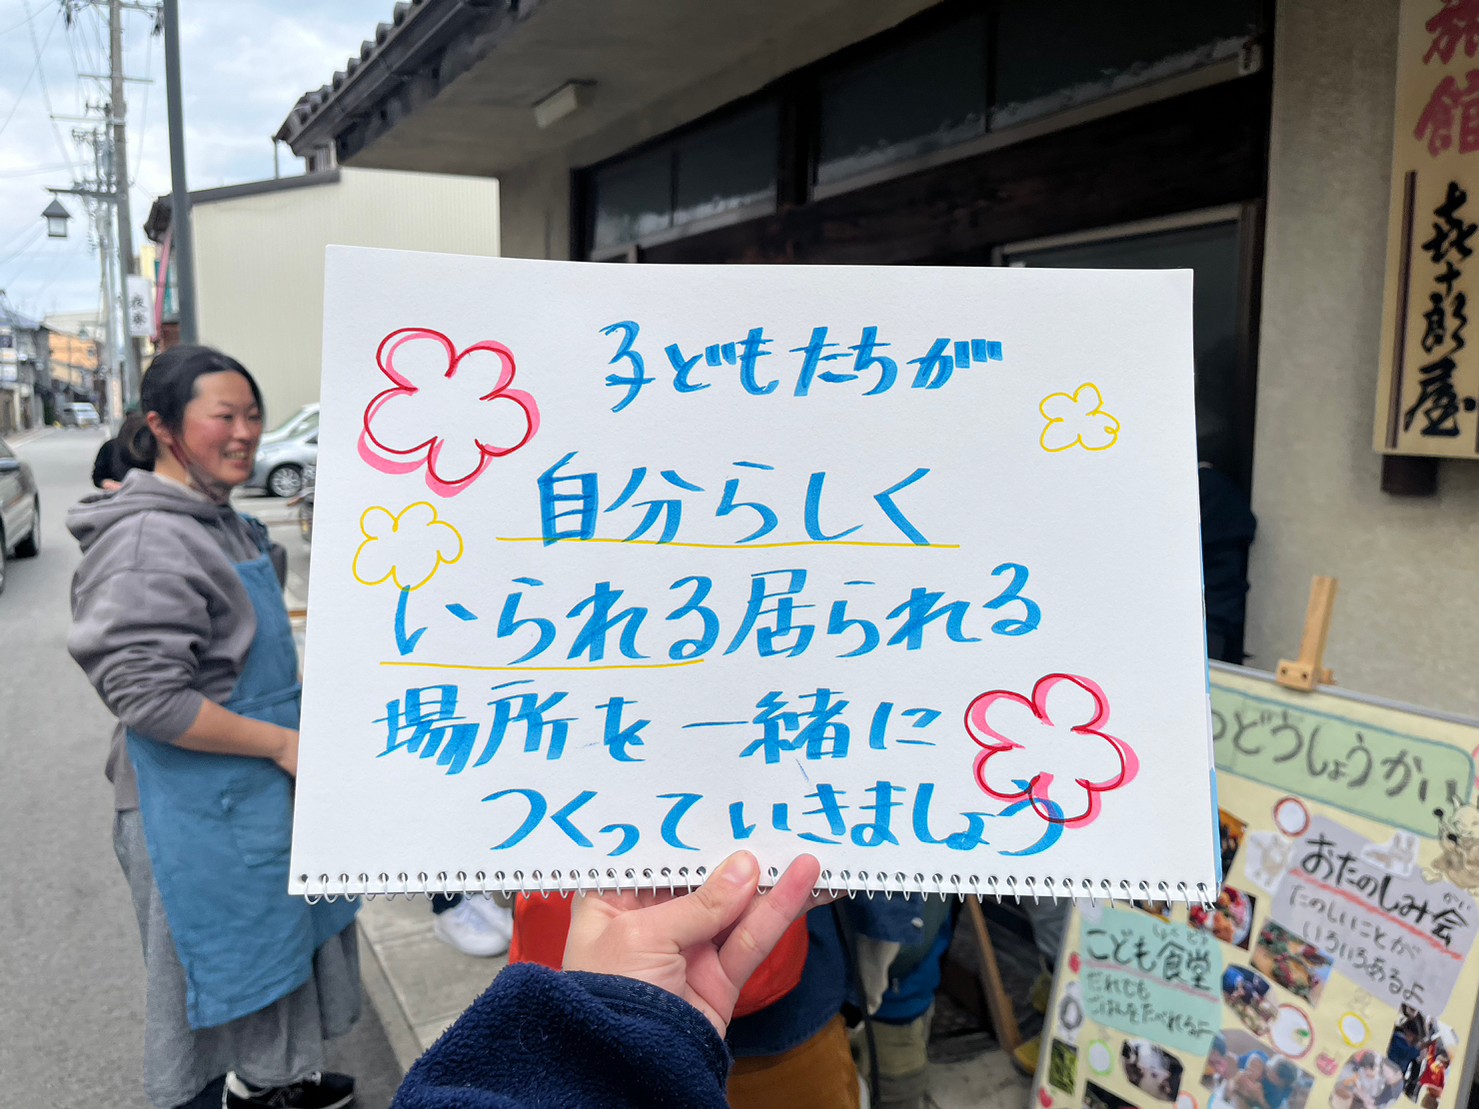 子どもたちが
自分らしく
いられる居られる
場所を一緒に
つくっていきましょう
旅館
喜十郎屋
つどうしょうかい
おたのしみ会
かい
たのしいことが
いろいろあるよ
こども食堂
しょくどう
だれでも
ごはんをたべれるよー